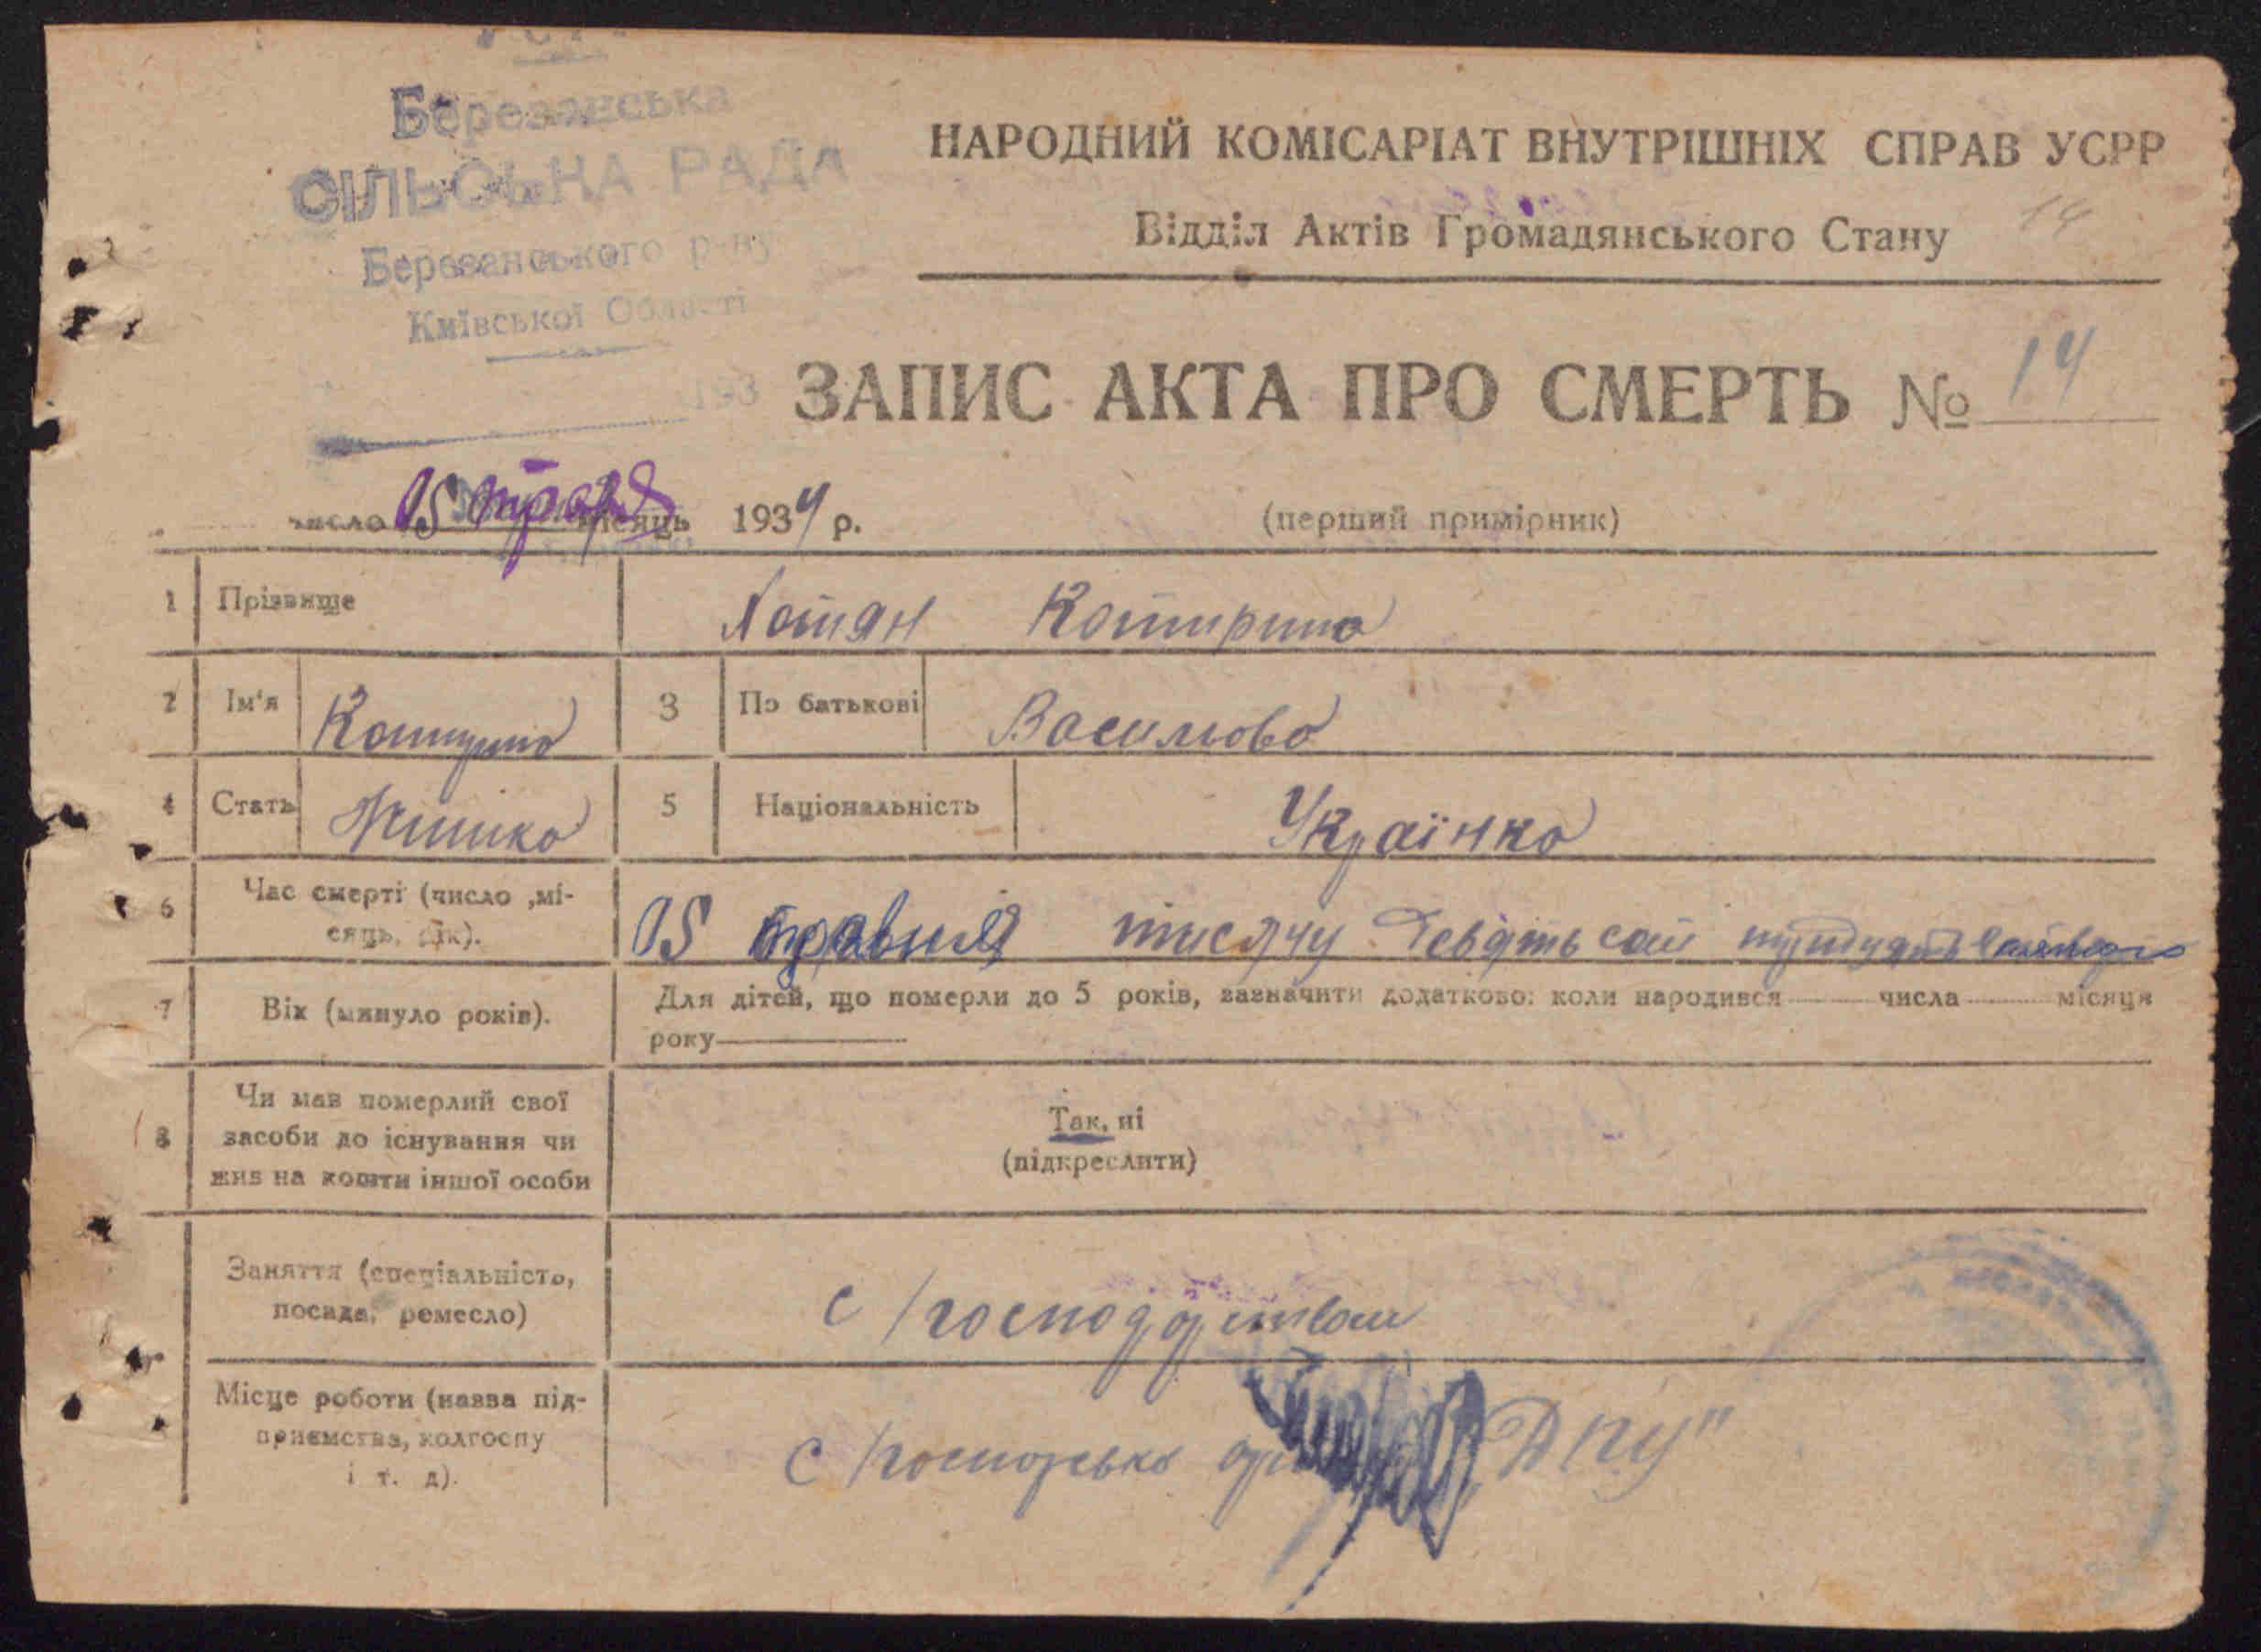 Березанська
СІЛЬСЬКА РАДА
Березанського р-ну
Київської Області
193
НАРОДНИЙ КОМІСАРІАТ ВНУТРІШНІХ СПРАВ УСРР
Відділ Актів Громадянського Стану
14
ЗАПИС АКТА ПРО СМЕРТЬ № 14
число 05 травня місяць 1934 р.
(перший примірник)
1 Прізвище Хотян Катирина
2 Ім'я Катирина 3 По батькові Василова
4 Стать Жінка 5 Національність Українка
6 Час смерті (число ,мі-
сяць, рік).
05 травня тисячу девять сот
7 Вік (минуло років).
Для дітей, що померли до 5 років, зазначити додатково: коли народився числа місяця
року
8 Чи мав померлий свої
засоби до існування чи
жив на кошти іншої особи
Так, ні
(підкреслити)
Заняття (спеціальність,
посада, ремесло)
с/господарством
Місце роботи (назва під-
приємства, колгоспу
і т. д).
с/господарська "ДПУ"